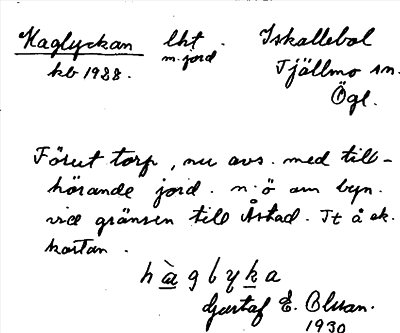 Haglyckan lht. Iskallebol
m. jord
kb 1928. Tjällmo sn.
Ögl.
Förut torp, nu avs. med till-
hörande jord. n.ö om byn.
vid gränsen till Åstad. Tt å ek.
kartan.
hàglyka
Gustaf E. Olsson.
1930